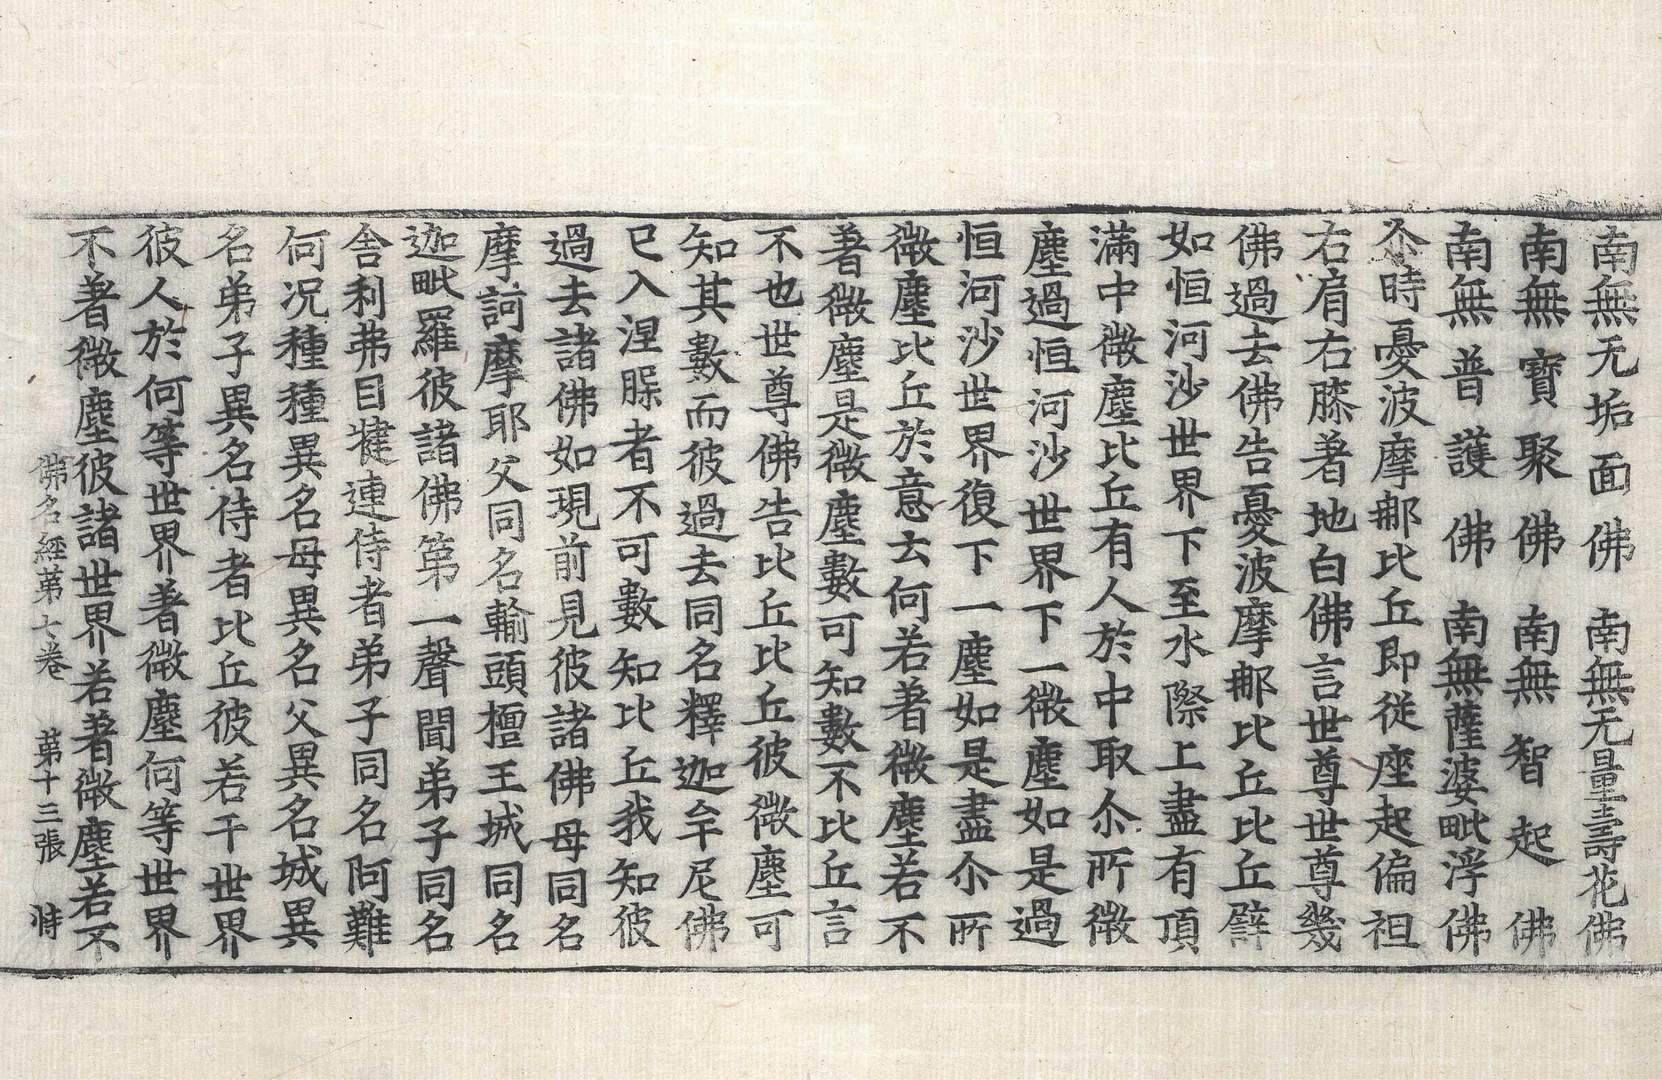 南無无垢面佛 南無无量壽花佛
南無寶聚佛 南無智起佛
南無普護佛 南無薩婆毗浮佛
尒時憂波摩那比丘即從座起偏袒
右肩右膝著地白佛言世尊世尊幾
佛過去佛告憂波摩那比丘比丘譬
如恒河沙世界下至水際上盡有頂
滿中微塵比丘有人於中取尒所微
塵過恒河沙世界下一微塵如是過
恒河沙世界復下一塵如是盡尒所
微塵比丘於意云何若著微塵若不
著微塵是微塵數可知數不比丘言
不也世尊佛告比丘比丘彼微塵可
知其數而彼過去同名釋迦牟尼佛
已入涅槃者不可數知比丘我知彼
過去諸佛如現前見彼諸佛母同名
摩訶摩耶父同名輸頭檀王城同名
迦毗羅彼諸佛第一聲聞弟子同名
舍利弗目揵連侍者弟子同名阿難
何况種種異名母異名父異名城異
名弟子異名侍者比丘彼若干世界
彼人於何等世界著微塵何等世界
不著微塵彼諸世界若著微塵若不
佛名經第七卷 第十三張 恃